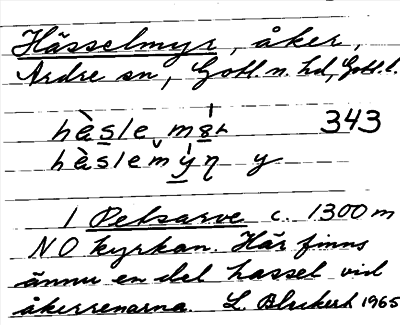 Hässelmyr, åker,
Ardre sn, Gotl. n. hd, Gotl. l.
hàsle 343
hàslem y
I Petsarve c. 1300 m
NO kyrkan. Här finns
ännu en del hassel vid
åkerrenarna. L. 1965